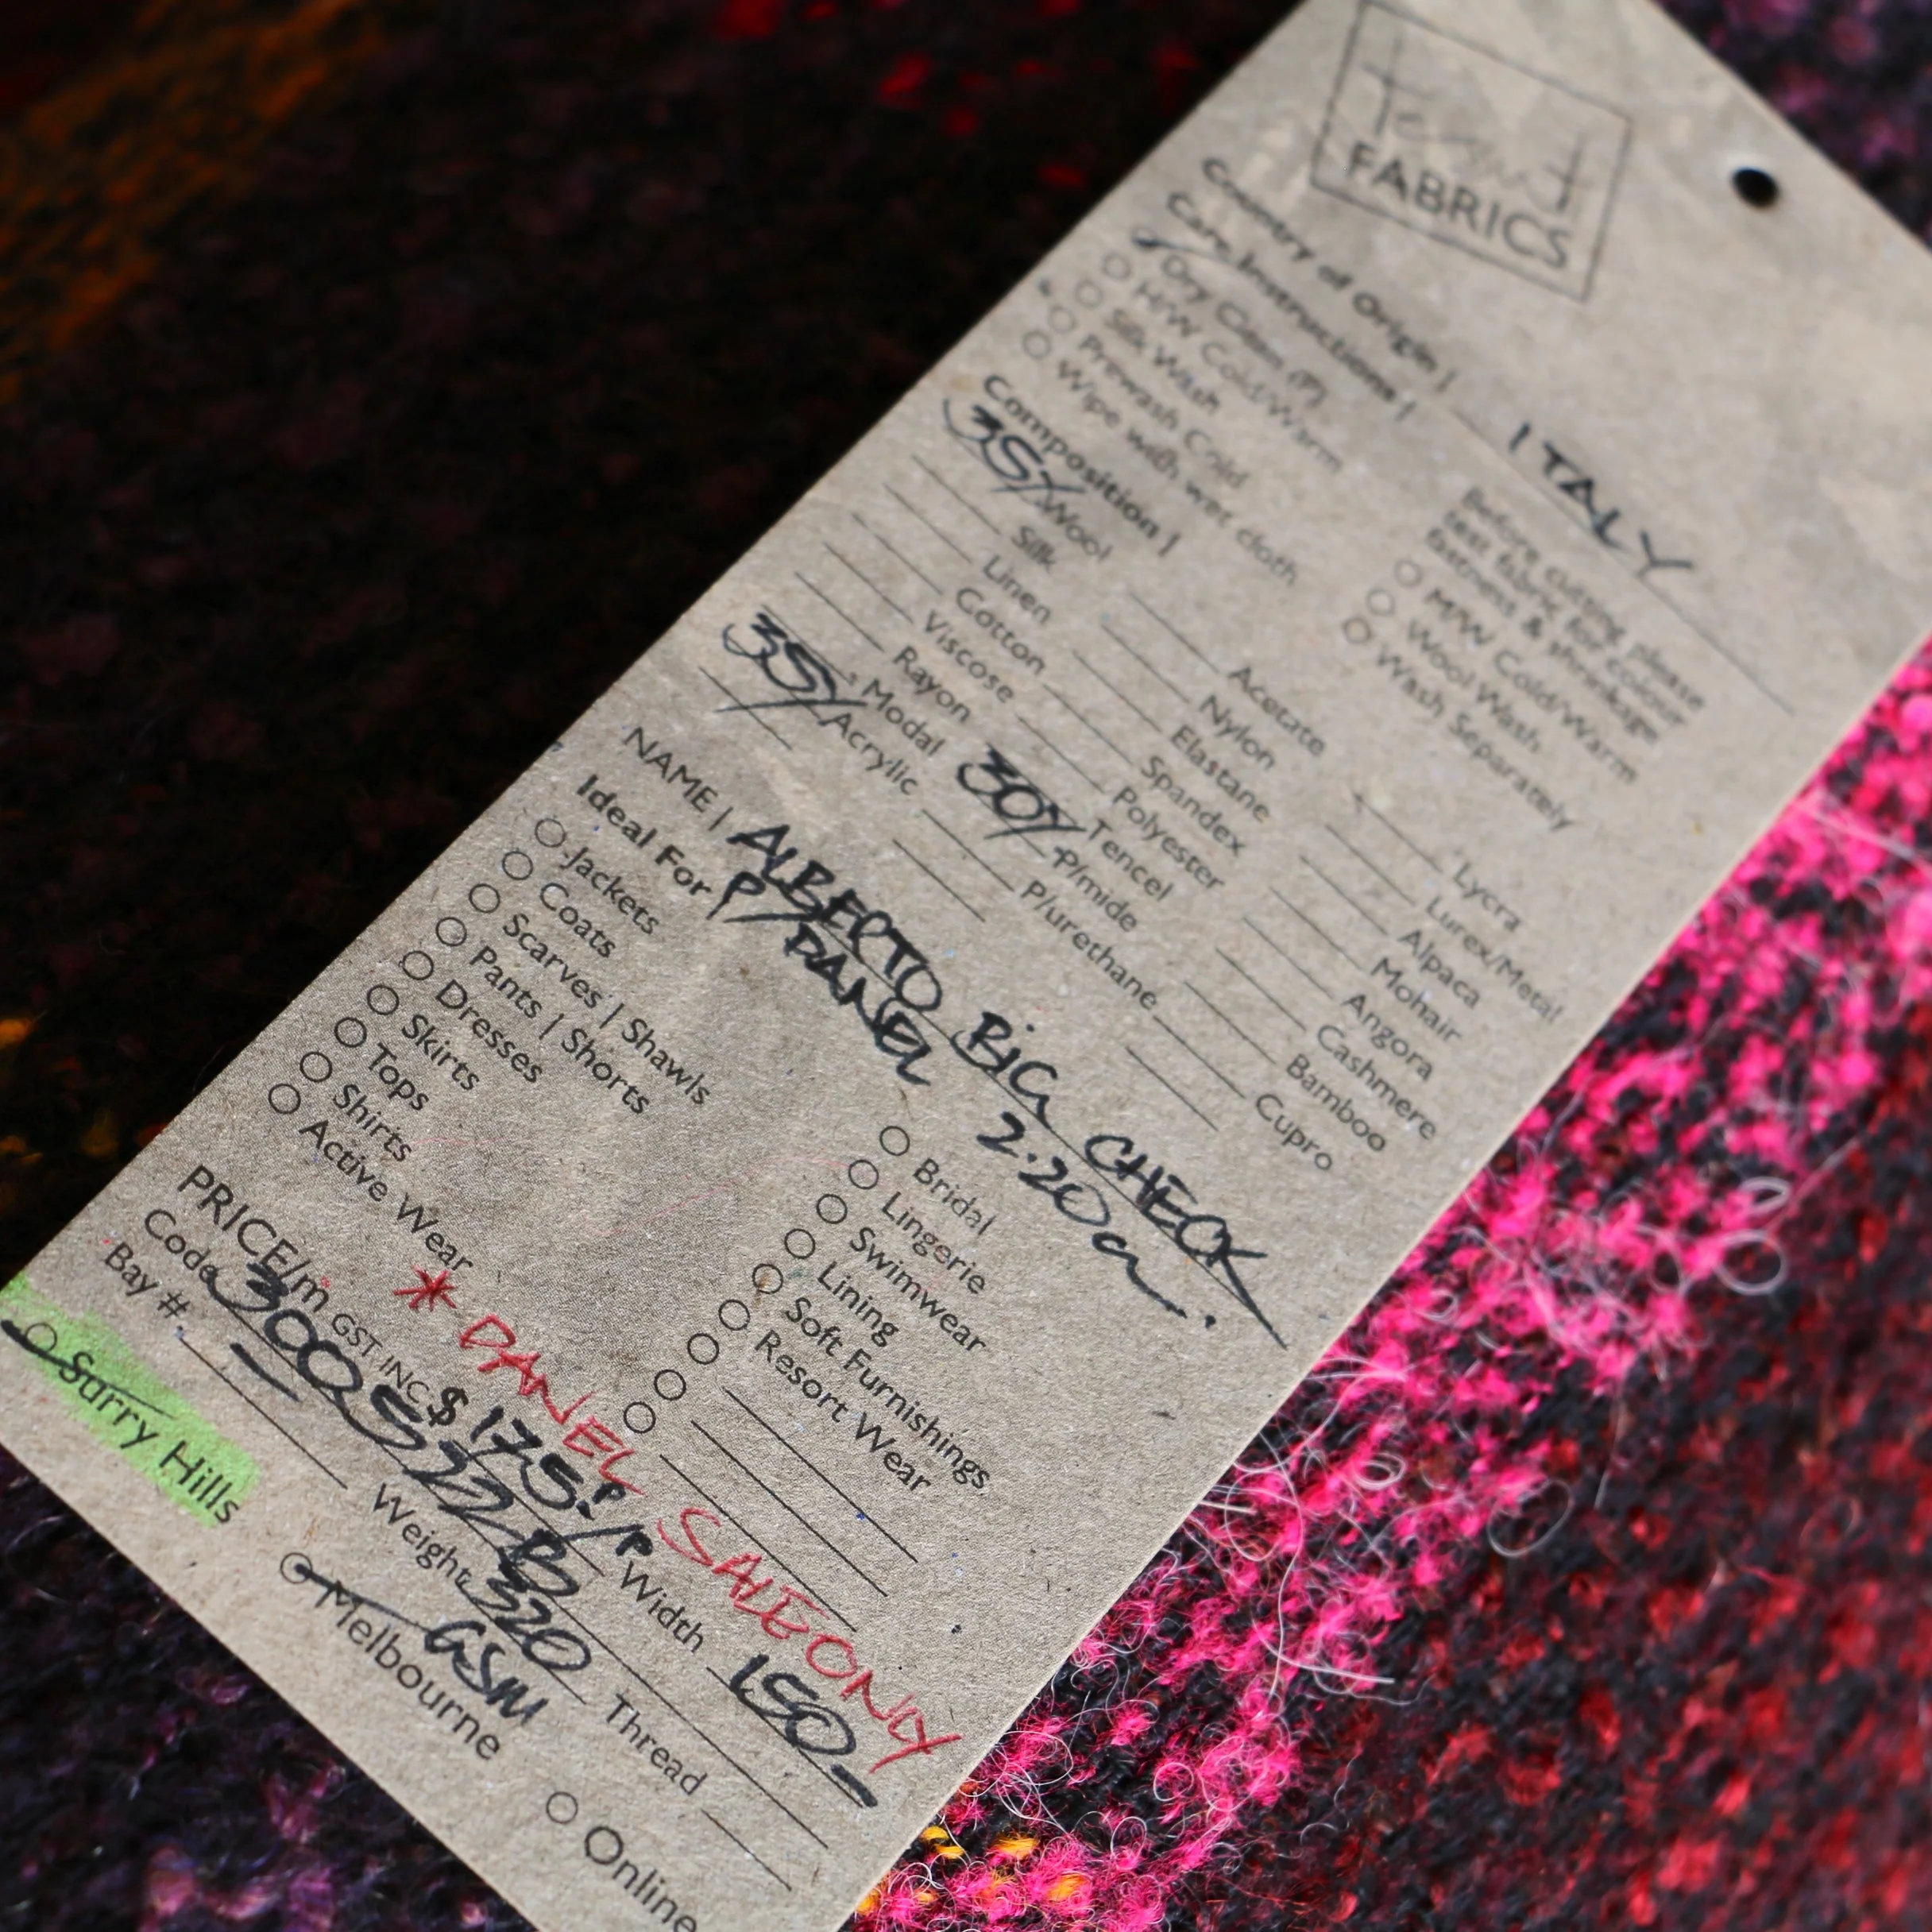 FABRICS
Country of Origin | ITALY
Care Instructions |
Before cutting please
test fabric for colour
fastness & shrinkage
Dry Clean (P)
H/W Cold/Warm
Silk Wash
Prewash Cold
Wipe with wet cloth
M/W Cold/Warm
Wool Wash
Wash Separately
Composition |
35% Wool
Silk
Linen
Cotton
Viscose
Rayon
Modal
35% Acrylic
Acetate
Nylon
Elastane
Spandex
Polyester
Tencel
30% P/mide
P/urethane
Lycra
Lurex/Metal
Alpaca
Mohair
Angora
Cashmere
Bamboo
Cupro
NAME | ALBERTO BIG CHECK
P/PANEL 2.20m.
Ideal For
Jackets
Coats
Scarves | Shawls
Pants | Shorts
Dresses
Skirts
Tops
Shirts
Active Wear
Bridal
Lingerie
Swimwear
Lining
Soft Furnishings
Resort Wear
* PANEL SALE ONLY
PRICE/m GST INC $ 175.-/P
Width 150
Code
Weight 320 GSM
Thread
Bay #
Surry Hills
Melbourne
Online